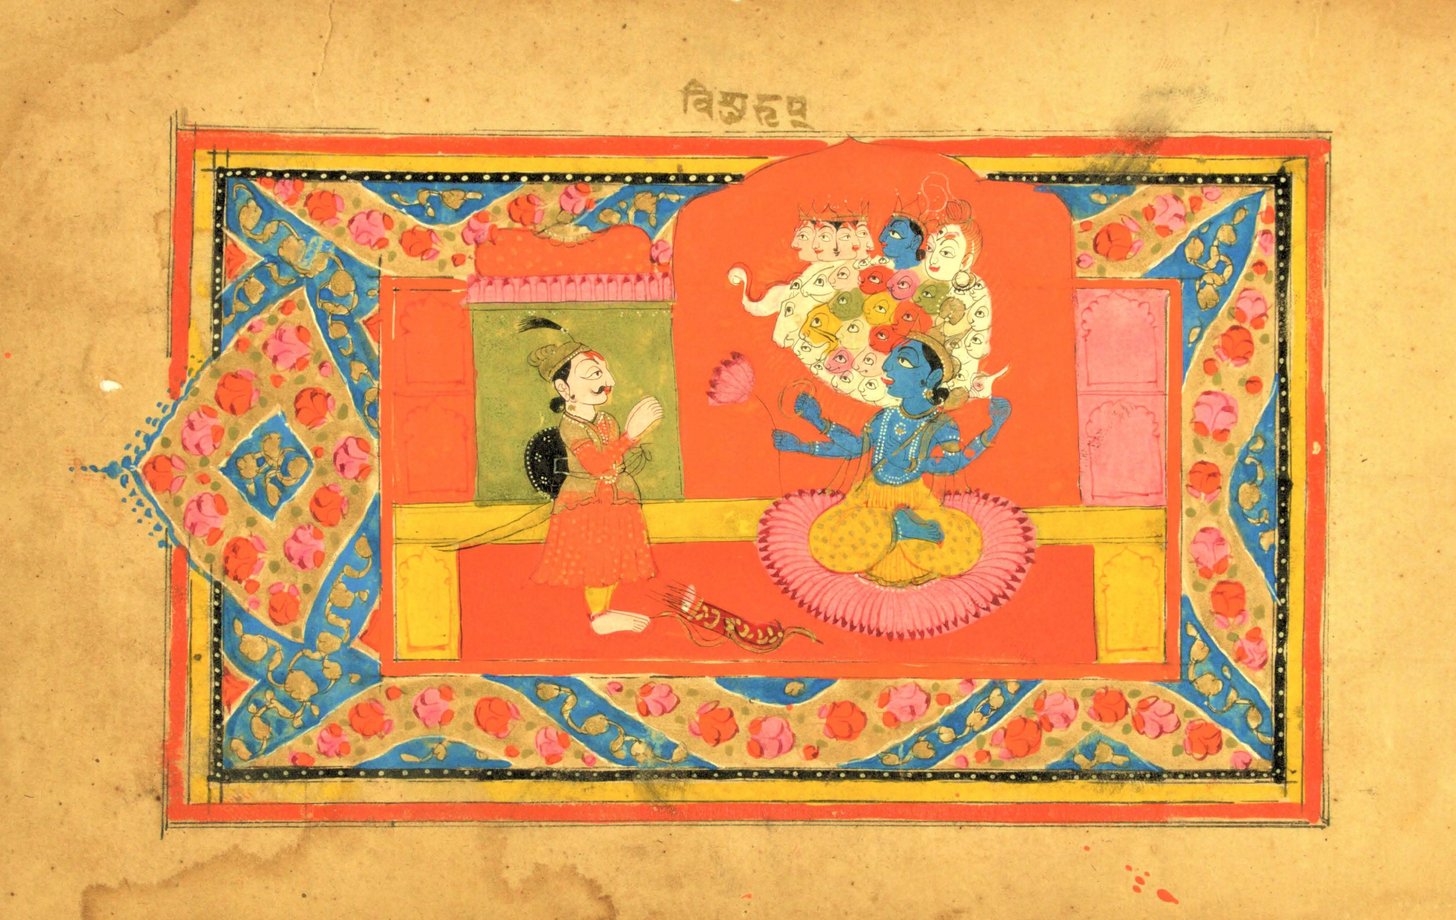 विश्वरूप